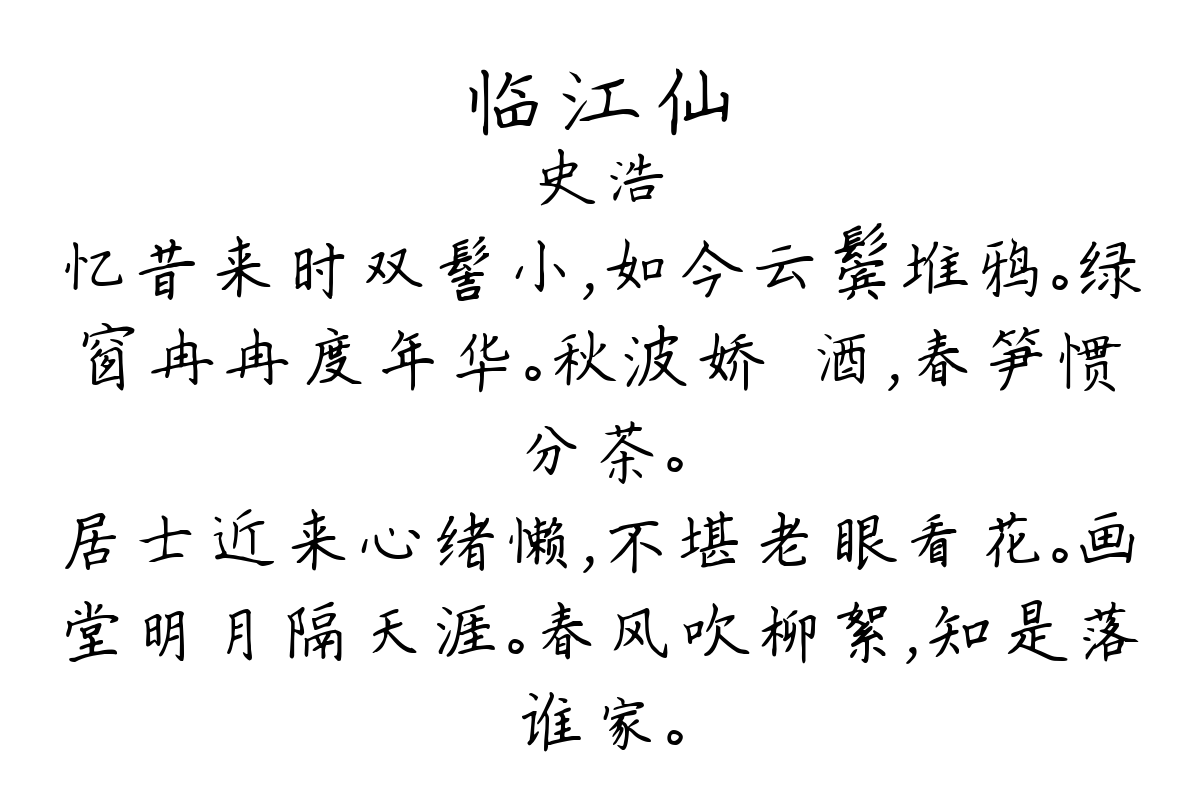 临江仙
史浩
忆昔来时双髻小,如今云鬓堆鸦。绿
窗冉冉度年华。秋波娇 酒,春笋惯
分茶。
居士近来心绪懒,不堪老眼看花。画
堂明月隔天涯。春风吹柳絮,知是落
谁家。